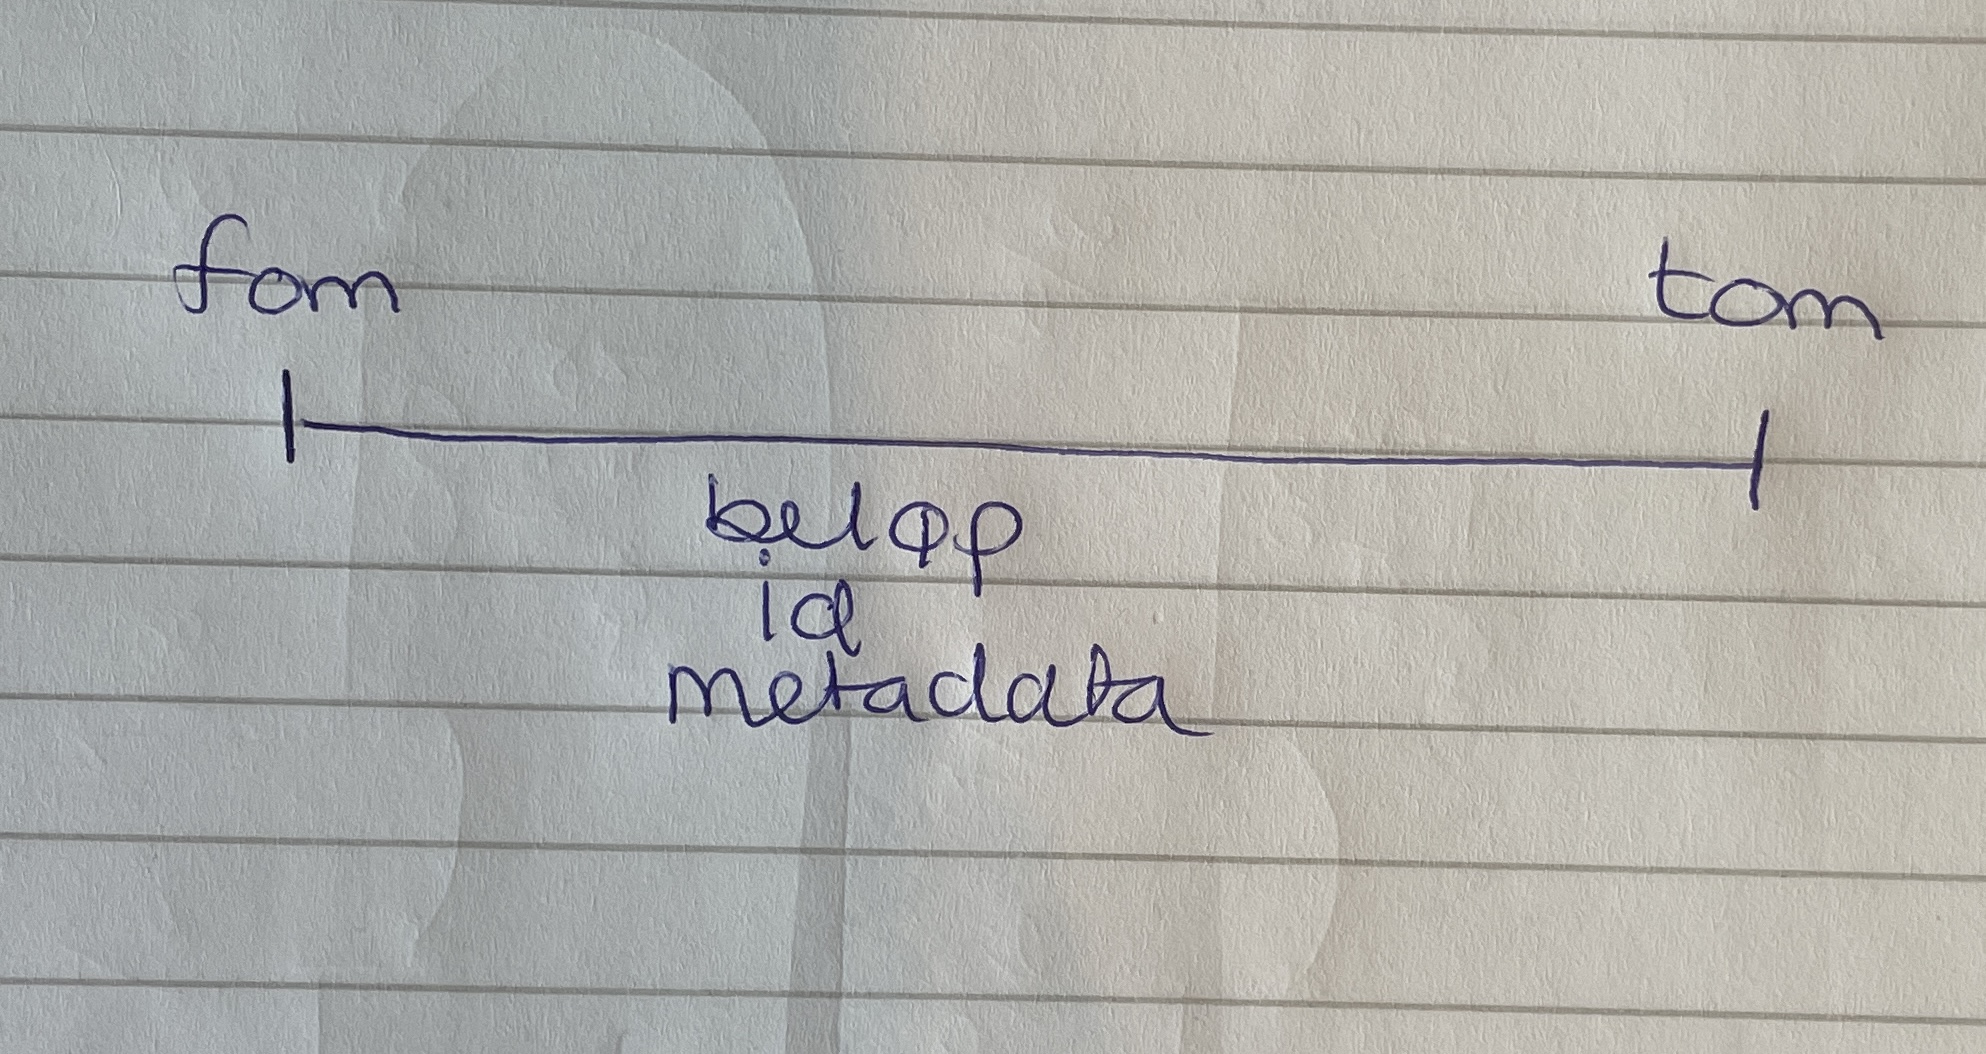 fom tom
beløp
id
metadata